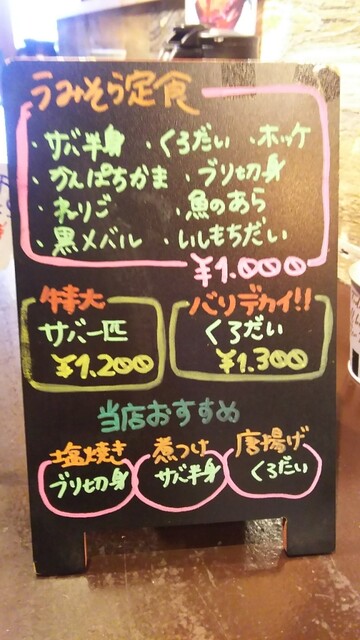 うみそら定食
・サバ半身 ・くろだい ・ホッケ
・かんぱちかま ・ブリ切身
・れりご ・魚のあら
・黒メバル ・いしもちだい
¥1.000
特大
サバ一匹
¥1.200
バリデカイ!!
くろだい
¥1.300
当店おすすめ
塩焼き
ブリ切身
煮つけ
サバ半身
唐揚げ
くろだい